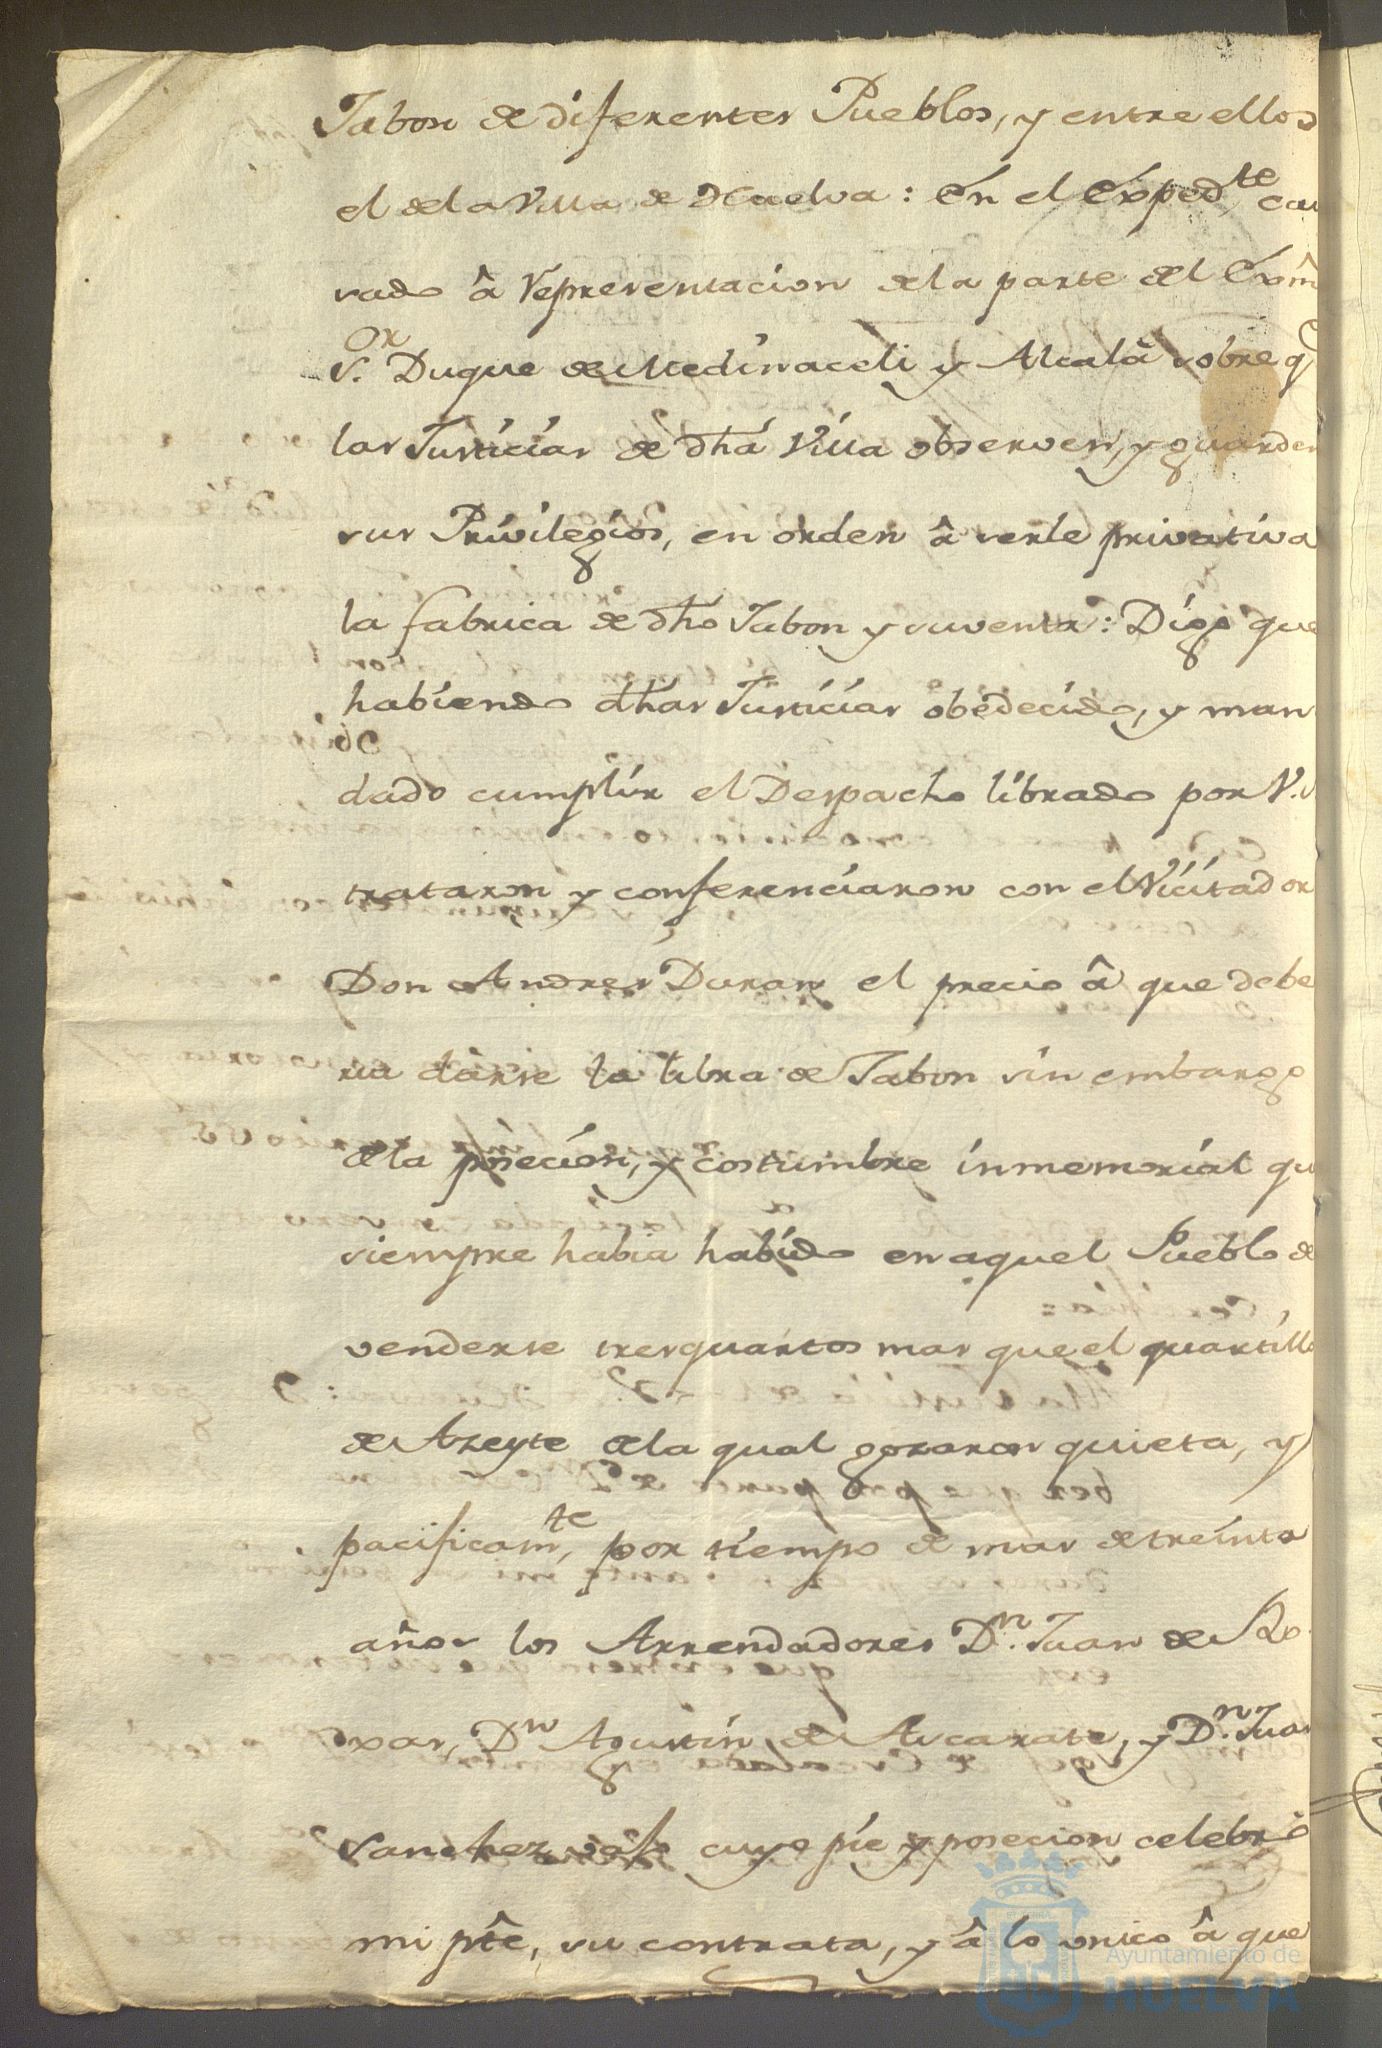 Jabon de diferentes Pueblos, y entre ellos
el dela Villa de Huelva: En el Expedte cau
sado â Representacion dela parte del Exm̂
Sor. Duque de Medinaceli y Alcalà sobre q
las Justicias de dha Villa observen, y guarden
sus Privilegios, en orden â serle privativa
la fabrica de dho Jabon y suventa: Digo que
habiendo dhas Justicias obedecido, y man
dado cumplir el Despacho librado por V.S
trataron y conferenciaron con el Vicitador
Don Andres Duran el precio â que debe
ria darse la libra de Jabon sin embargo
dela posecion, y costumbre inmemorial qu
siempre habia habido en aquel Pueblo de
venderse tresquartos mas que el quartillo
de Azeyte dela qual gozaron quieta, y
pacificamte, por tiempo de mas de treinta
años los Arrendadores Dn. Juan de Ro
xas, Dn Agustin de Ascarate, y Dn. Juan
Sanchez, vajo cuyo pie y posecion celebrò
mi pte, su contrata, y â lo unico â que
Ayuntamiento de
HUELVA